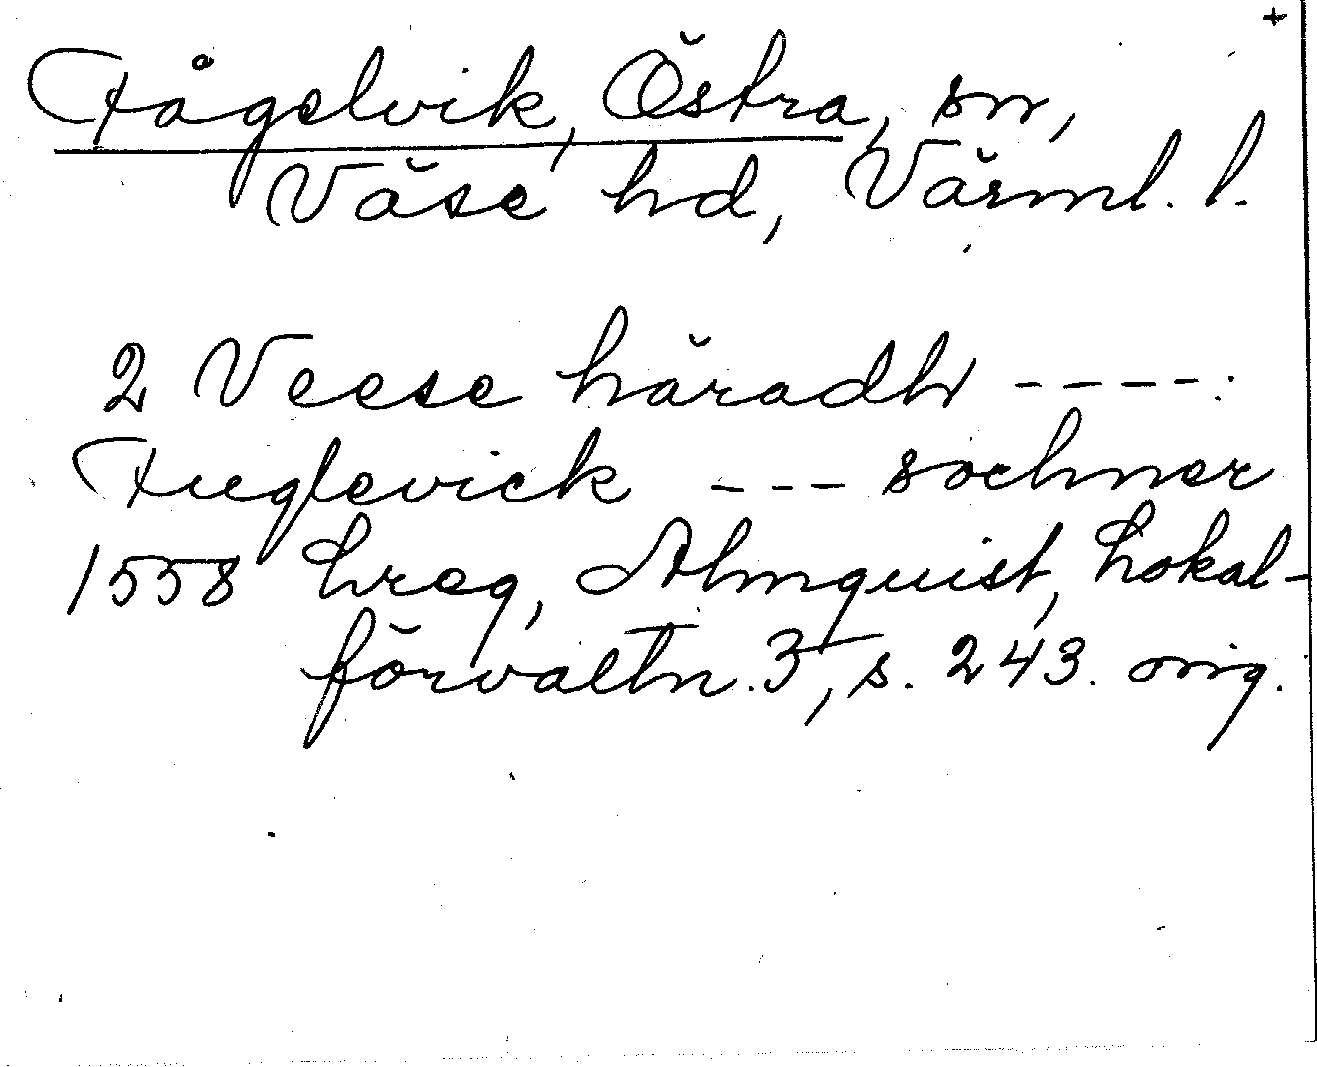 +
Fågelvik, Östra, sn,
Väse hd, Värml. l.
2 Veese häradh ----:
Fuglevick --- sochner
1558 hreg, Almquist, Lokal-
förvaltn. 3, s. 243. orig.